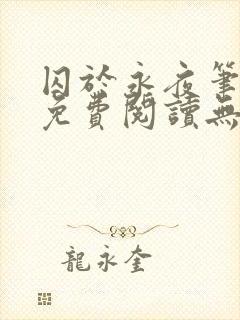 囚於永夜筆
免費閱讀無
龍永奎